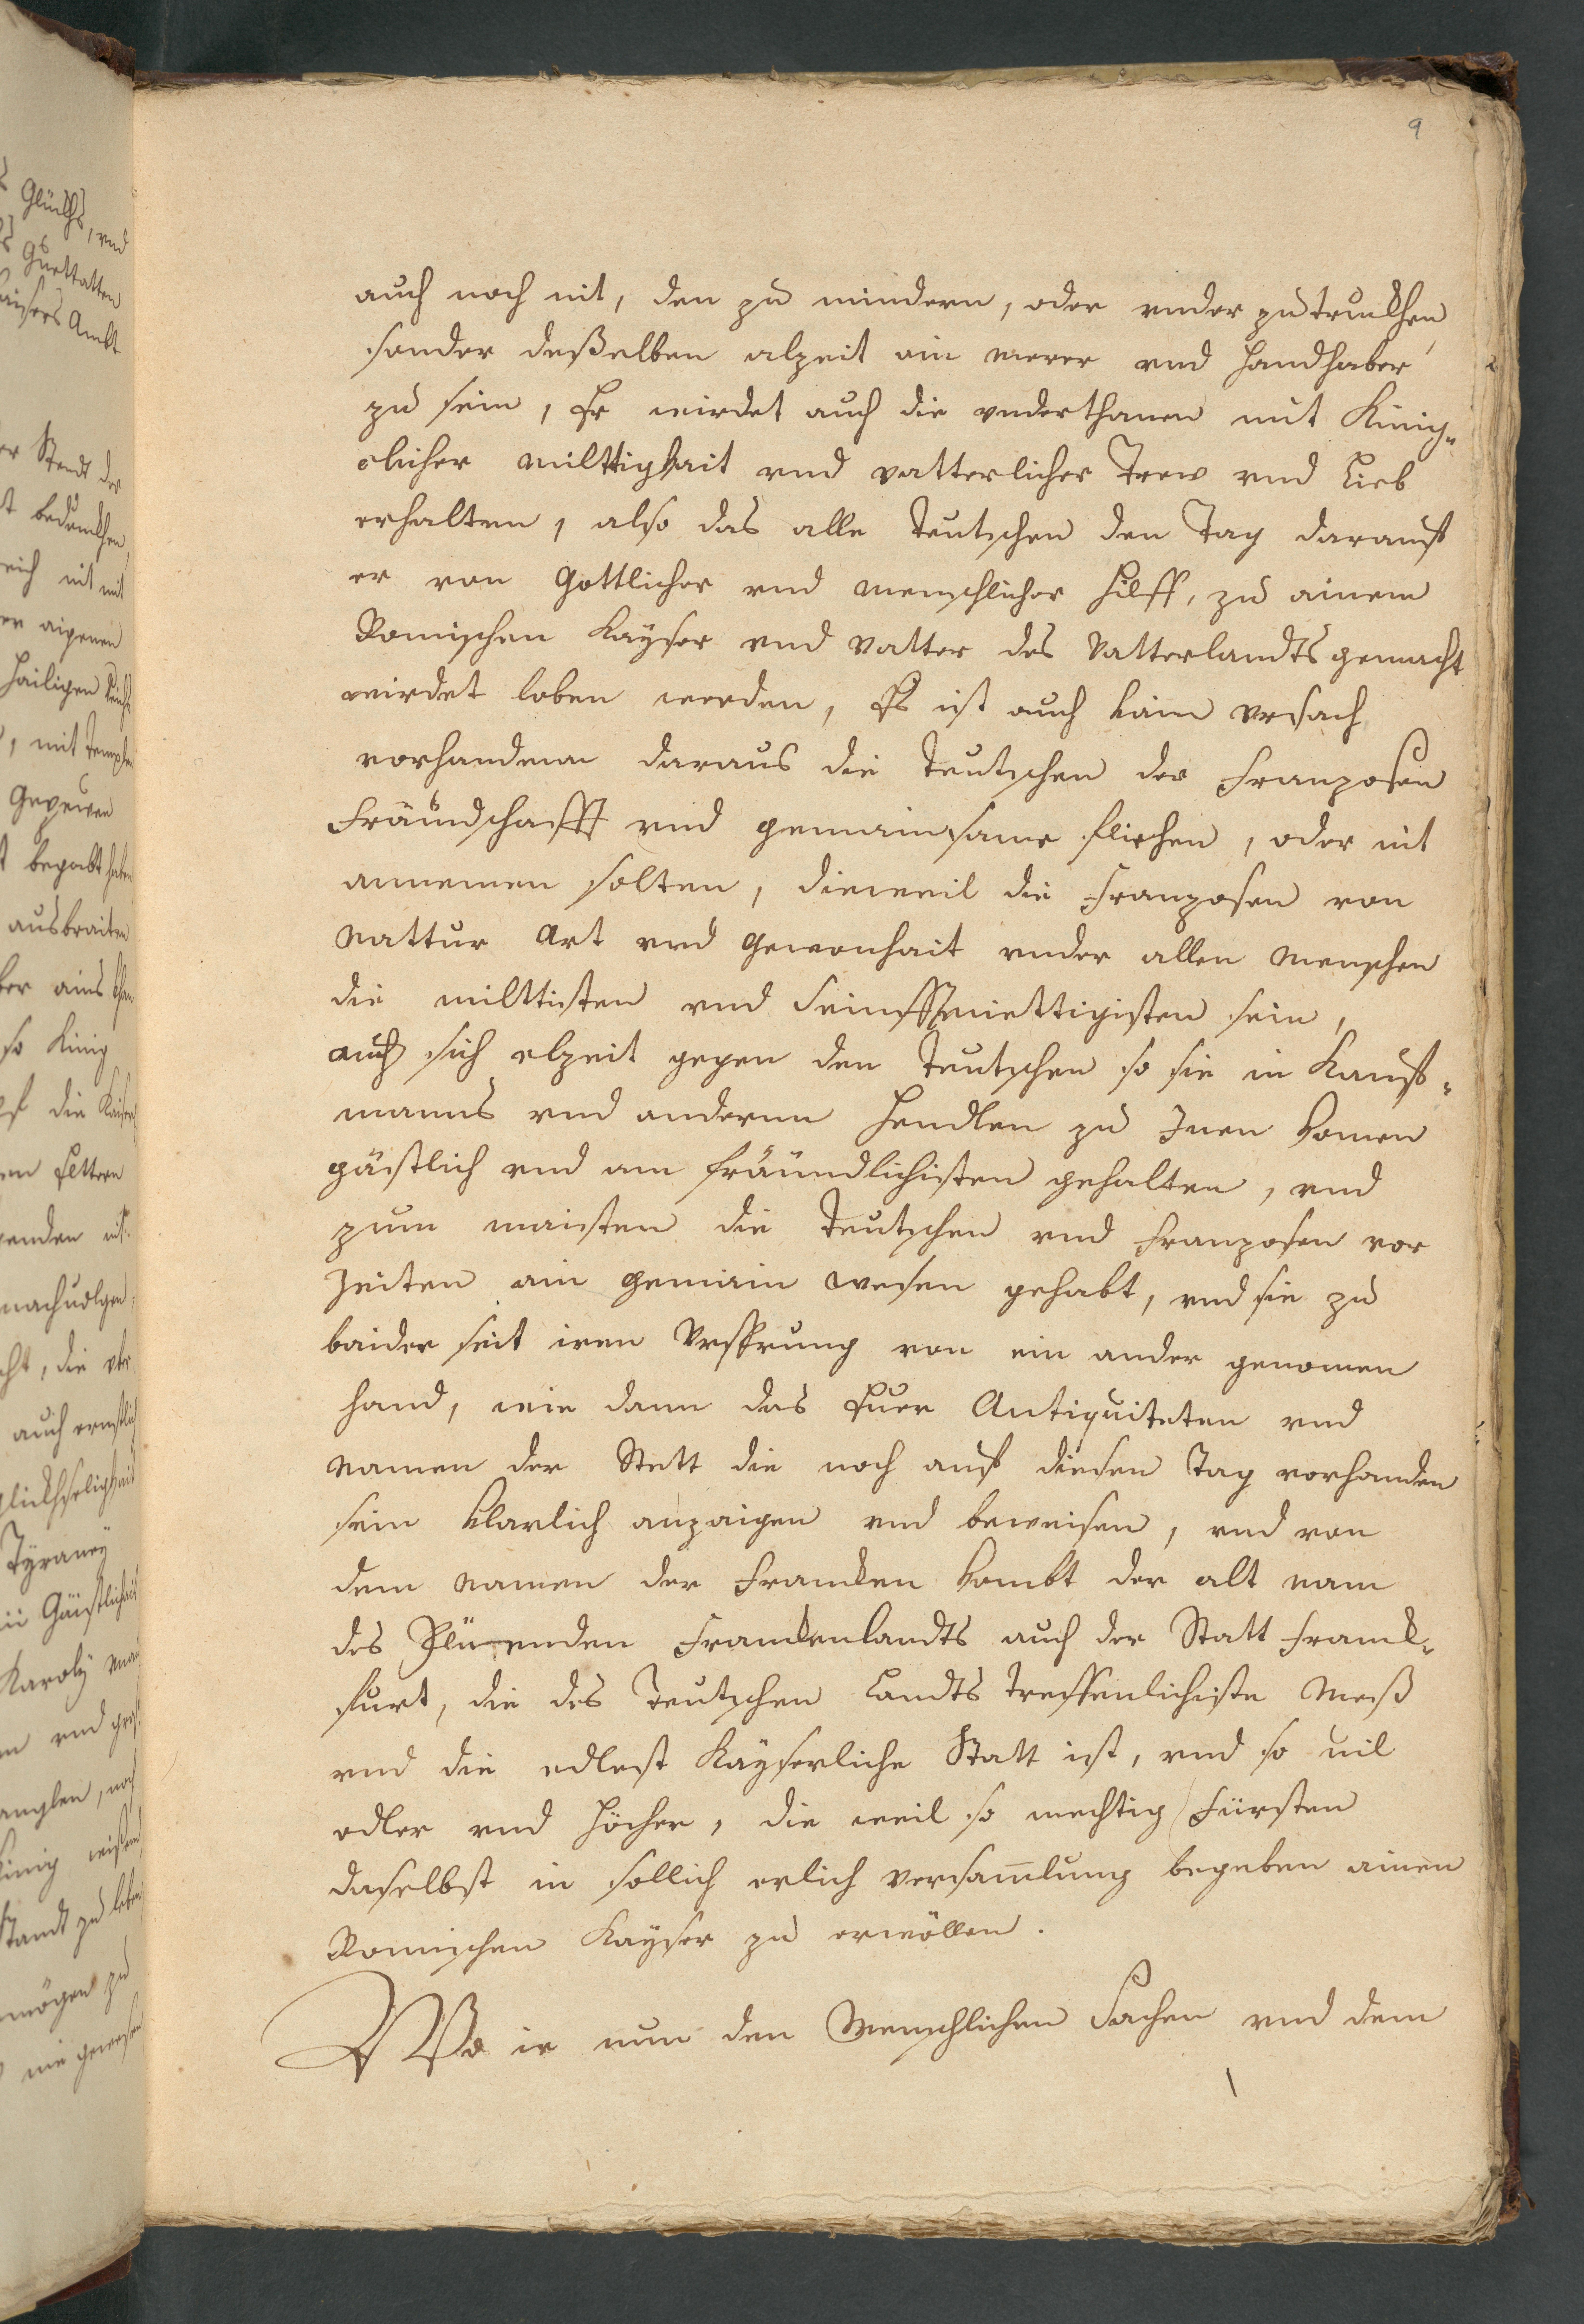 9
auch noch nit, den zu mindern, oder vnder zutruckhen,
sonder deßelben alzeit ain merer vnd Handhaber
zu sein, Er wirdet auch die vnderthanen mit Künig„
clicher milttigkait vnd vatterlicher Trew vnd Lieb
erhalten, also das alle Teutschen den Tag darauf
er von Gottlicher vnd menschlicher Hilff, zu ainem
Romischen Kayser vnd Vatter des Vatterlandts gemacht
wirdet loben werden, Es ist auch kain Vrsach
vorhandenn daraus die Teutschen der Franzosen
Fräundschafft vnd gemainsame fliehen, oder nit
annemen solten, dieweil die Franzosen von
Nattur Art vnd Gewonhait vnder allen menschen
die milttisten vnd Seinfftmiettigisten sein,
auch sich alzeit gegen den Teutschen so sie in Kauf„
manns vnd andernn Hendlen zu Inen komen
gäistlich vnd am fräundlichisten gehalten, vnd
zum maisten die Teutschen vnd Franzosen vor
Zeiten ain gemain wesen gehabt, vnd sie zu
baider seit iren Vrsprung von ein ander genomen
hand, wie dann das Euer Antiquiteten vnd
Namen der Stett die noch auf diesen Tag vorhanden
sein klarlich anzaigen vnd beweisen, vnd von
dem Namen der Francken kombt der alt nam
des Blüenden Franckenlandts auch der Statt Franck„
furt, die des Teutschen Landts treffenlichiste Meß
vnd die edlest Kayserliche Statt ist, vnd so vil
edler vnd höcher, die weil so mechtig Fürsten
daselbst in sollich erlich versam̄lung begeben ainen
Romischen Kayser zu erwöllen.
Wo ir nun den Menschlichen Sachen vnd dem